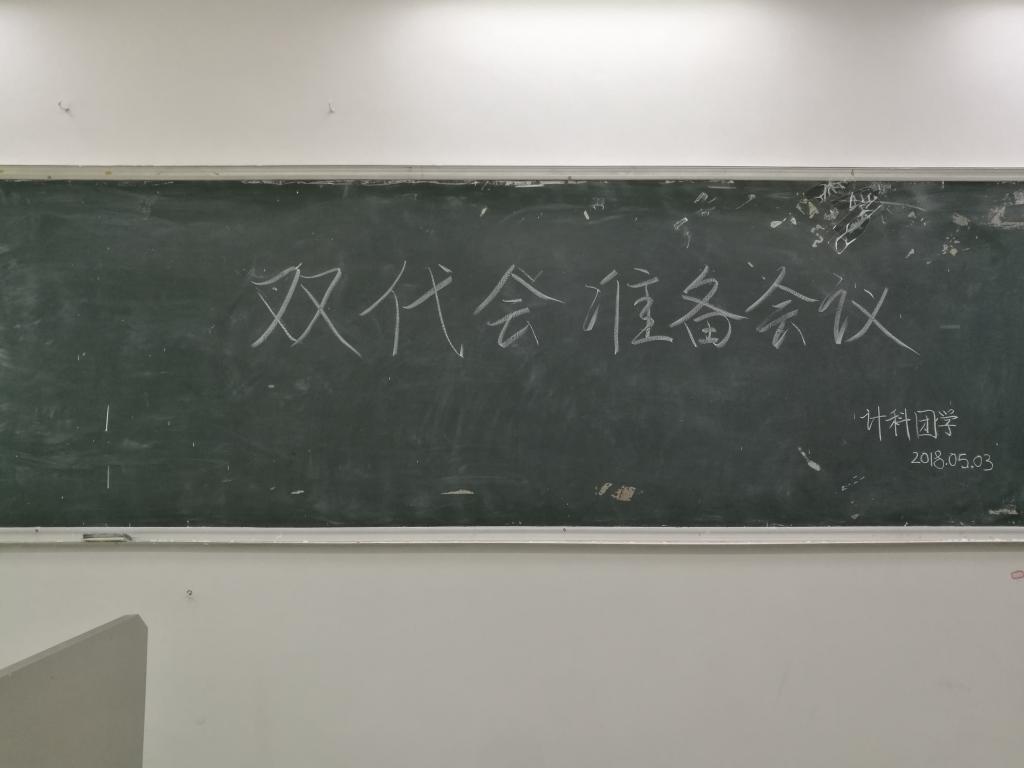 双代会准备会议
计科团学
2018.05.03